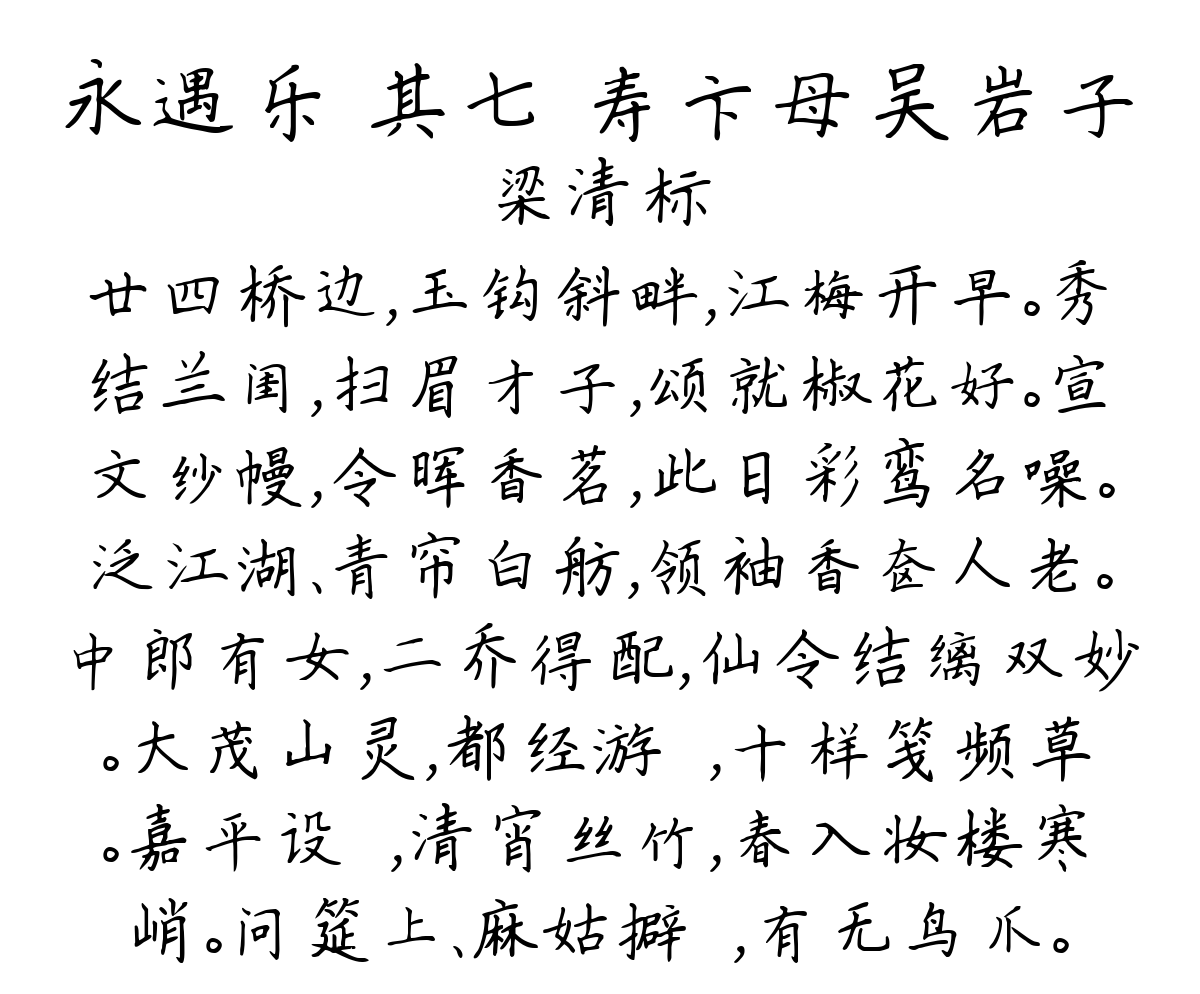 永遇乐 其七 寿卞母吴岩子
梁清标
廿四桥边,玉钩斜畔,江梅开早。秀
结兰闺,扫眉才子,颂就椒花好。宣
文纱幔,令晖香茗,此日彩鸾名噪。
泛江湖、青帘白舫,领袖香奁人老。
中郎有女,二乔得配,仙令结缡双妙
。大茂山灵,都经游 ,十样笺频草
。嘉平设 ,清宵丝竹,春入妆楼寒
峭。问筵上、麻姑擗 ,有无鸟爪。